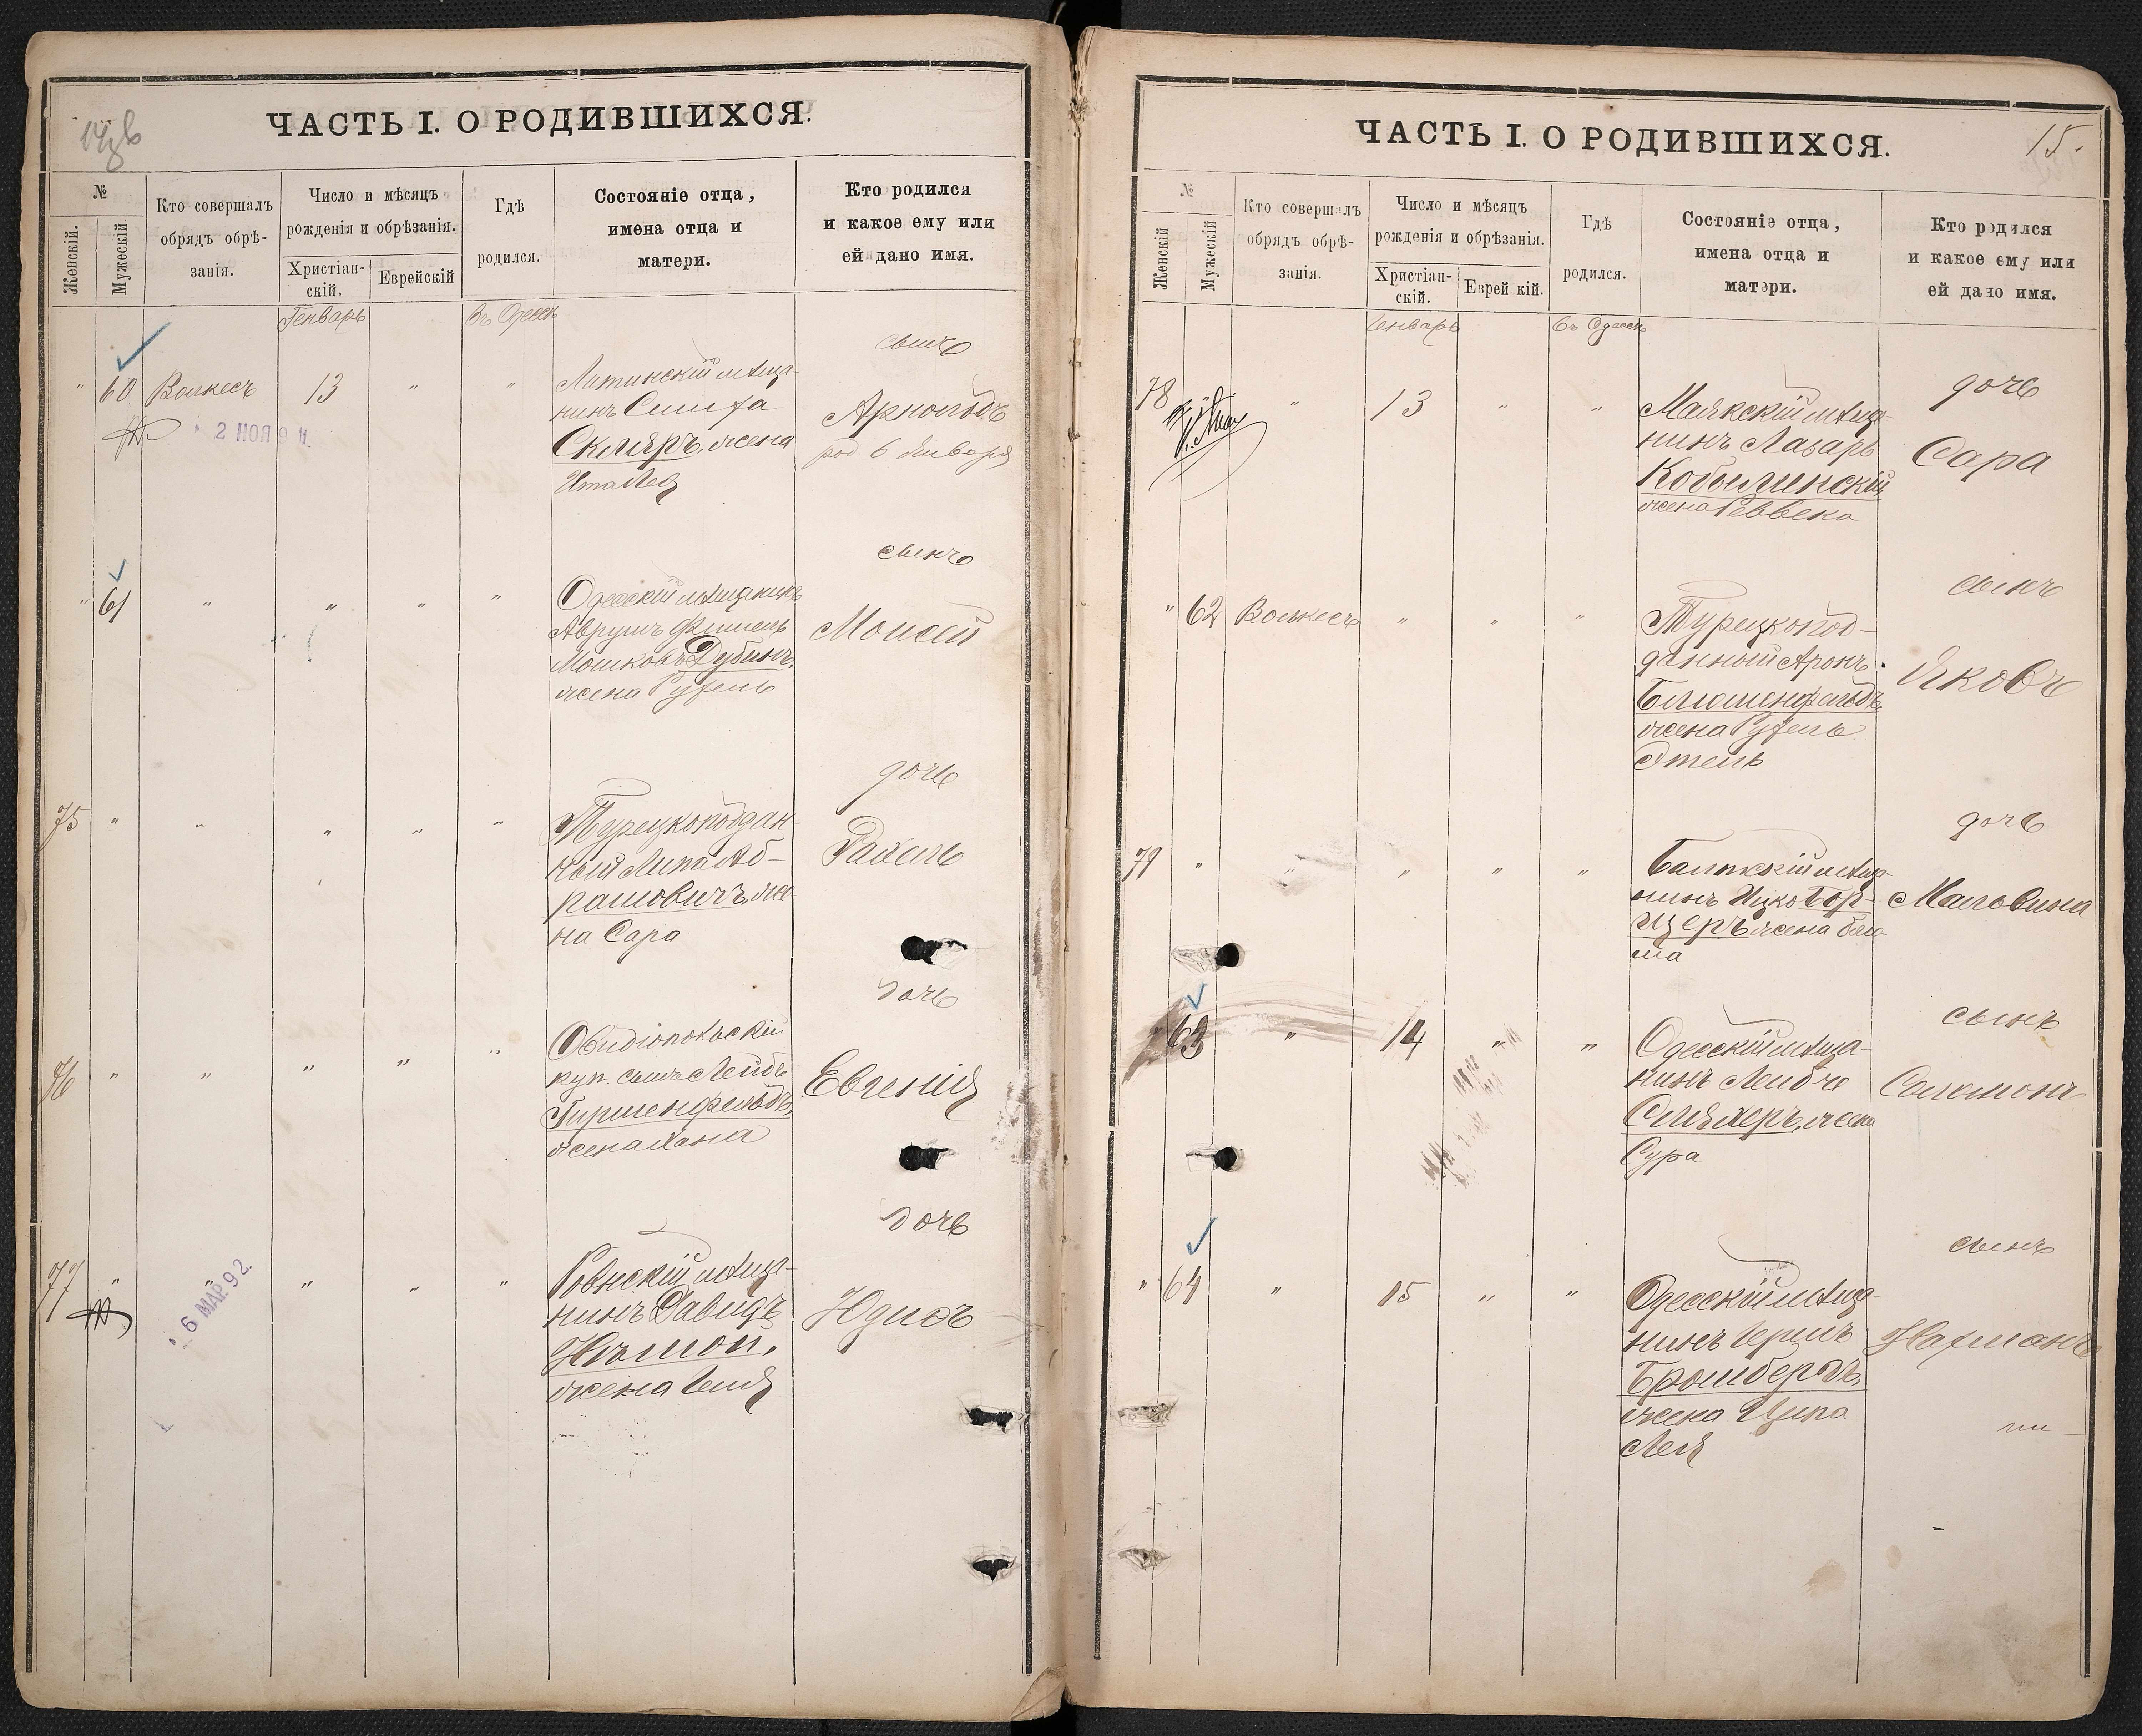 ЧАСТЬ I. О РОДИВШИХСЯ.
№
Женскій.
Мужескій
Кто совершалъ
обрядъ обрѣ-
занія.
Число и мѣсяцъ
рожденія и обрѣзанія.
Христіан-
скій.
Еврейскій
Гдѣ
родился.
Состояніе отца,
имена отца и
матери.
Кто родился
и какое ему или
ей дано имя.
Генварь
въ Одессѣ
сынъ
" 60 Волкесъ 13 " "
Литинскій мѣща-
нинъ Симха
Скляръ, жена
Ита Лея
Арнольдъ
род 6 Января
2 НОЯ
сынъ
" 61 " " " "
Одесскій мѣщанинъ
Аврумъ Фишель
Мошковъ Дубинъ,
жена Рухель
Моисей
дочь
75 " " " " "
Турецкоподдан-
ный Липа Аб-
рамовичъ, же-
на Сара
Рахиль
дочь
76 " " " " "
Овидіопольскій
куп. сынъ Лейбъ
Гиршенфельдъ,
жена Хана
Евгенія
дочь
77 " " " " "
6 МАР 92.
Ровнскій мѣща-
нинъ Давидъ
жена
Юдисъ
ЧАСТЬ I. О РОДИВШИХСЯ.
15.
№
Женскій
Мужескій
Кто совершалъ
обрядъ обрѣ-
занія.
Число и мѣсяцъ
рожденія и обрѣзанія.
Христіан-
скій.
Еврей кій.
Гдѣ
родился.
Состояніе отца,
имена отца и
матери.
Кто родился
и какое ему или
ей дано имя.
Генварь
въ Одессѣ
дочь
78 " " 13 " "
Маякскій мѣща-
нинъ Лазарь
Кобылинскій
жена Реввека
Сара
сынъ
" 62 Волкесъ " " "
Турецкопод-
данный Аронъ
Блюменфельдъ,
жена Рухель
Этель
Яковъ
дочь
79 " " " " "
Балтскій мѣща-
нинъ Ицко Бор-
щеръ, жена Блю-
ма
Мальвина
сынъ
" 63 " 14 " "
Одесскій мѣща-
нинъ Лейбъ
жена
Сура
Соломонъ
сынъ
" 64 " 15 " "
Одесскій мѣща-
нинъ Герщъ
Бромбергъ,
жена Ципа
Лея
Нахманъ